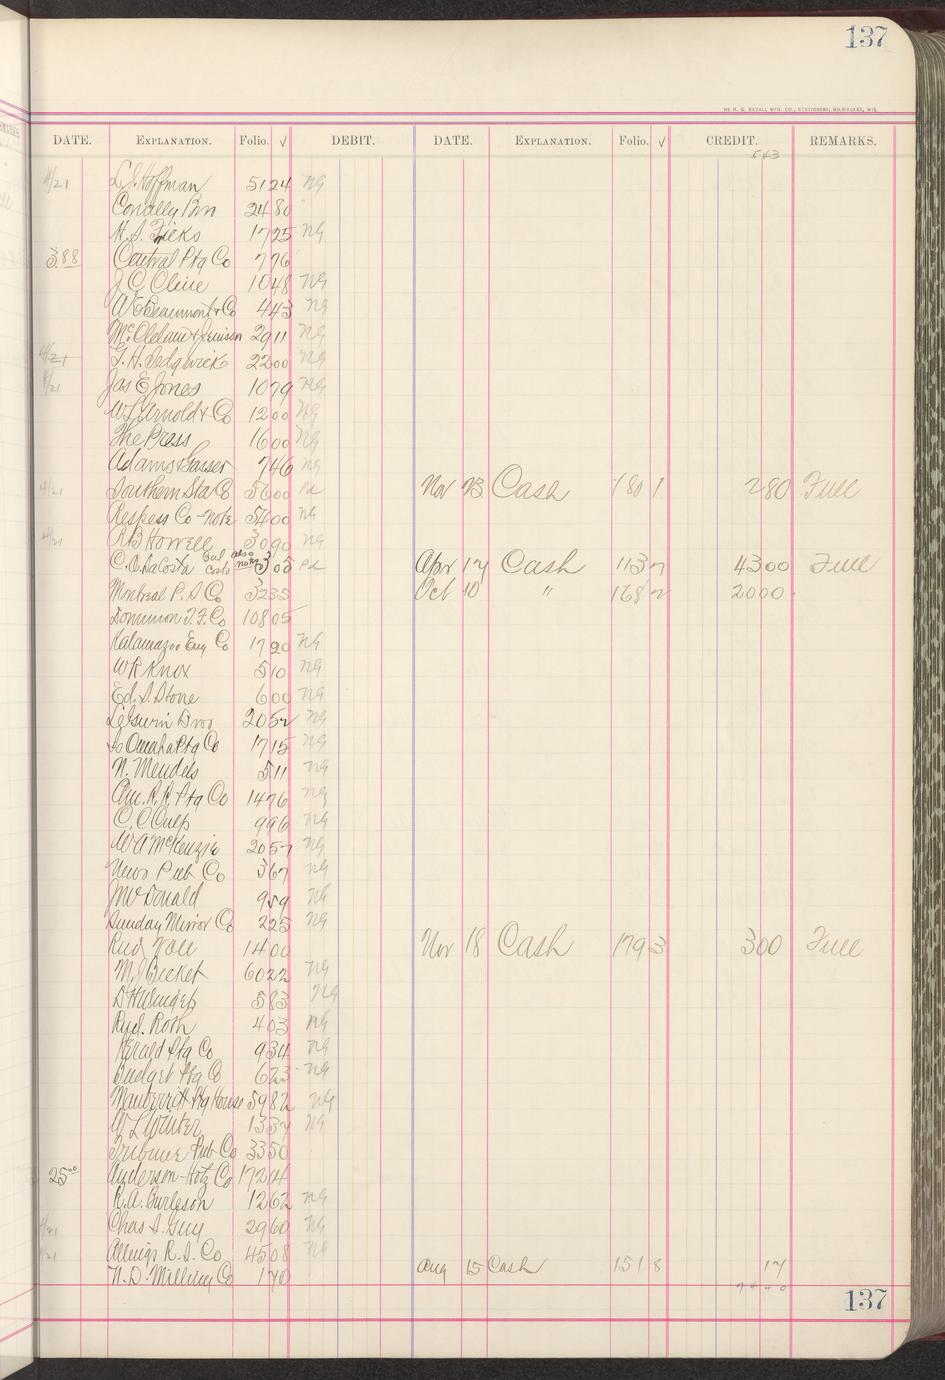 137
THE H. G. RAZALL MFG. CO., STATIONERS, MILWAUKEE, WIS.
DATE. EXPLANATION. Folio. √ DEBIT. DATE. EXPLANATION. Folio. √ CREDIT. REMARKS.
543
4/21 Hoffman 5124 NG
Conally Bro 2480
H. S. Hicks 1725 NG
3.88 Central Ptg Co 776
J C Cline 1048 NG
W E Beaumont & Co 443 NG
McClelan & Denison 2911 NG
4/21 G. H. Sedgwick 2200 NG
4/21 Jas E Jones 1079 NG
W L Arnold & Co 1200 NG
The Press 1600 NG
Adams & Gasser 746 NG
4/21 Southern Sta Co 5600 Pd Nov 23 Cash 180 1 280 Full
Respess Co - Note 5400 NG
4/21 R B Howell 3090 NG
C. A. DaCosta Bal costs also note 305 Pd Apr 17 Cash 113 7 4300 Full
Montreal P. S Co 3235 Oct 10 " 168 2 2000
Dominion T. F. Co 10805
Kalamazoo Eng Co 1790 NG
W R Knox 510 NG
Ed. S. Stone 600 NG
Bros 2052 NG
So Omaha Ptg Co 1715 NG
N. Mendels 511 NG
Am. R. R. Ptg Co 1476 NG
C. C Culp 996 NG
W A McKenzie 2057 NG
News Pub Co 367 NG
J McDonald 959 NG
Sunday Mirror Co 225 NG
Rud 1400 Nov 18 Cash 179 3 300 Full
M. J Becket 6022 NG
D H Wenger 583 NG
Rud. Roth 403 NG
Herald Ptg Co 934 NG
Budget Ptg Co 623 NG
Ptg House 5982 NG
W L 1337 NG
Tribune Pub Co 3350
25 00 Anderson-Hotz Co 17214
R. A. Burleson 1262 NG
4/21 Chas S. Guy 2960 NG
4/21 R. S. Co 4508 NG
N. D. Milling Co 170 Aug 15 Cash 151 8 17
7440
137